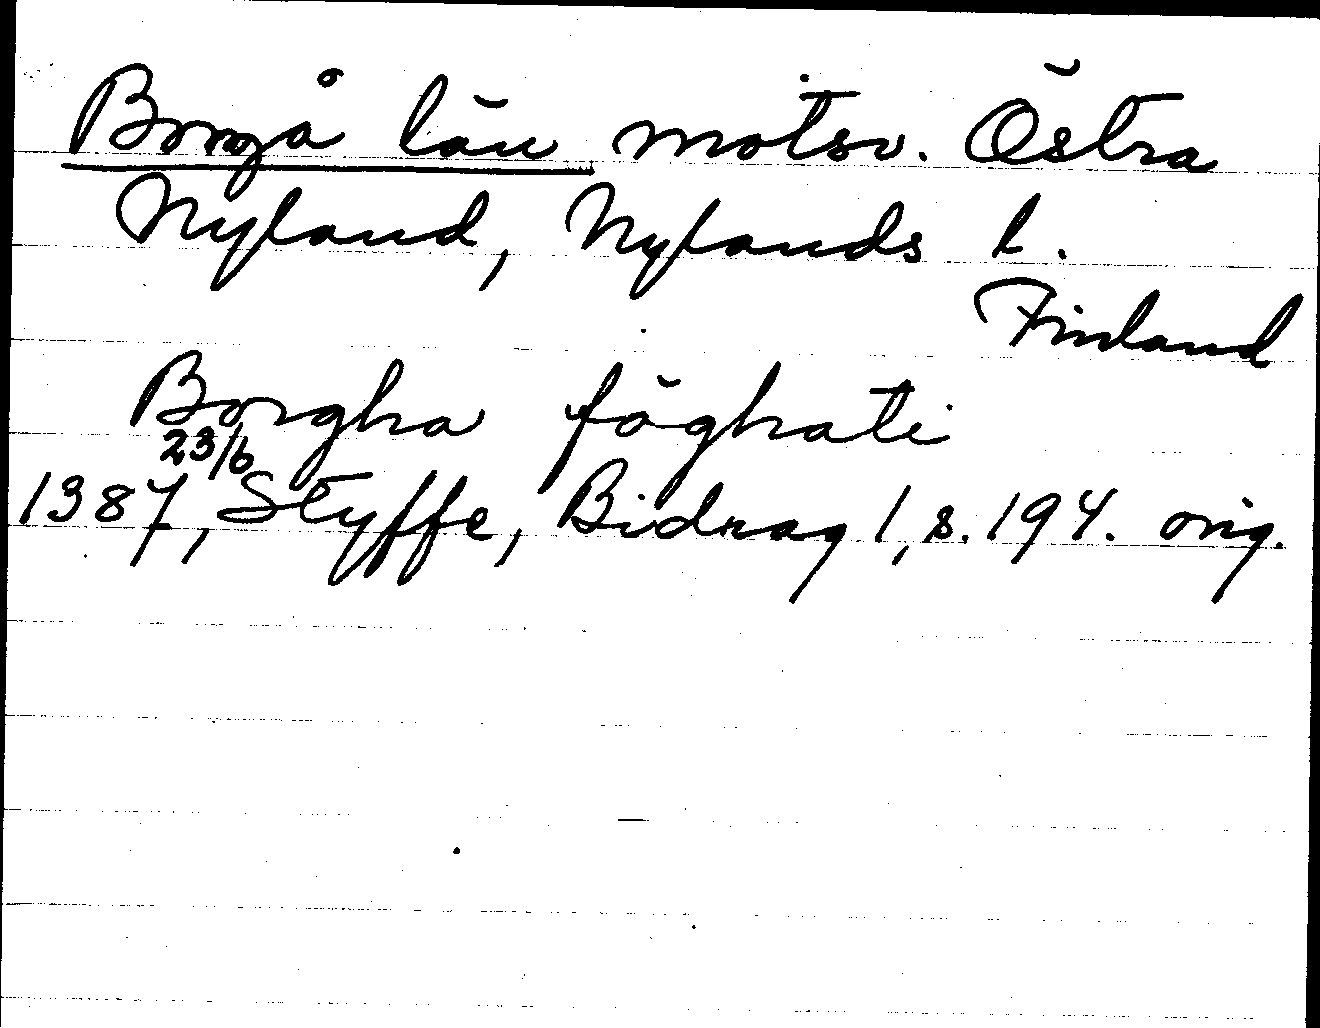 Borgå län motsv. Östra
Nyland, Nylands l.
Finland
Borgha föghati
23/6
1387, Styffe, Bidrag 1, s. 194. orig.